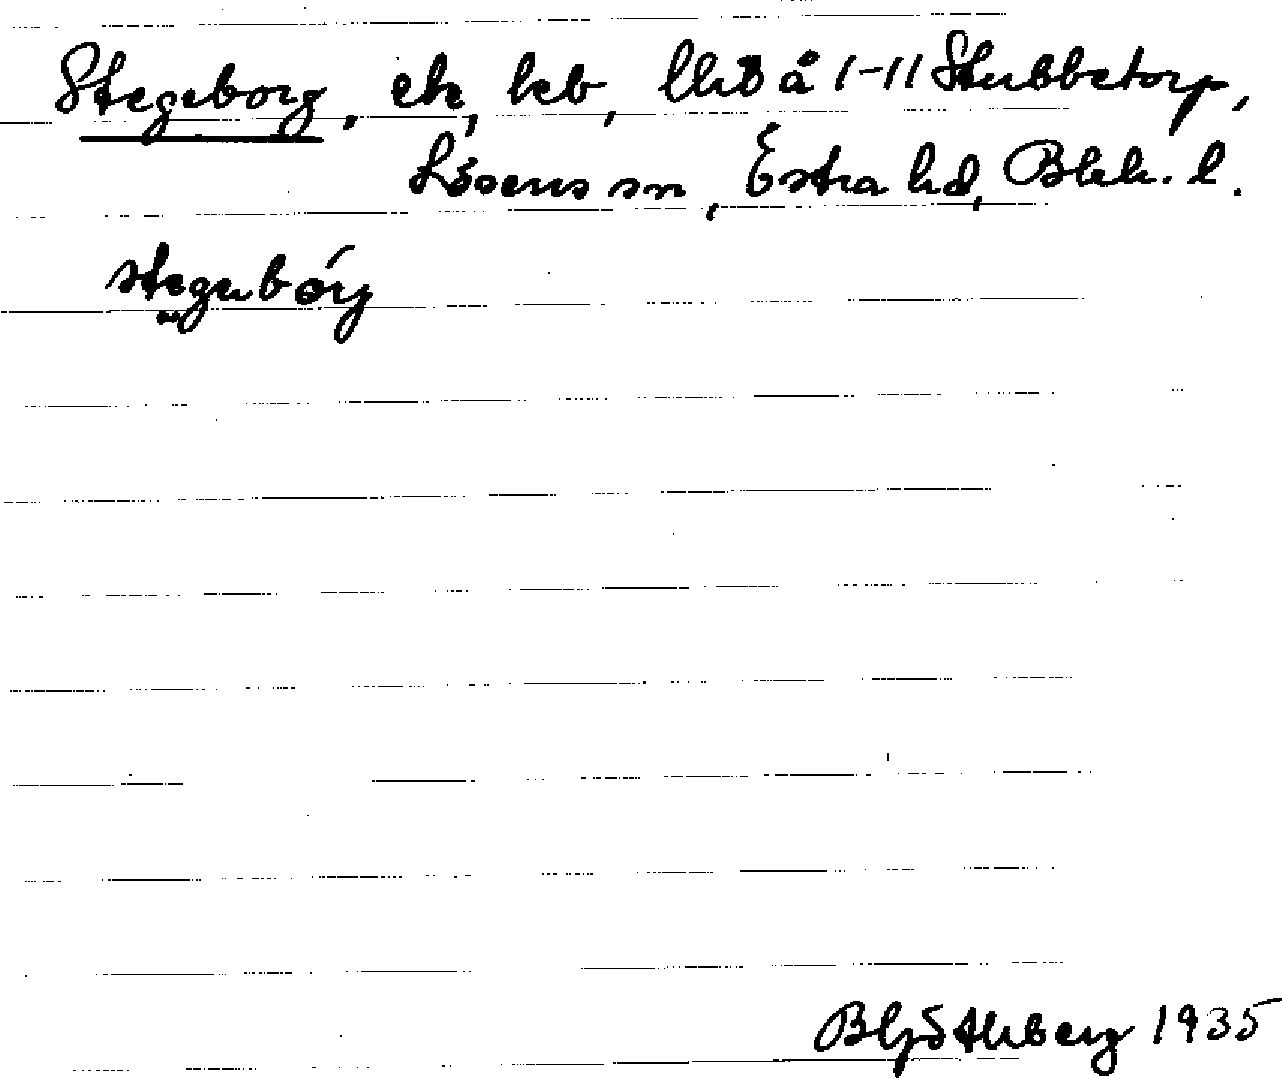 Stegeborg, ek, beb, lht å 1-11 Stubbetorp,
Lösens sn, Östra hd, Blek. l.
stegebórj
1935